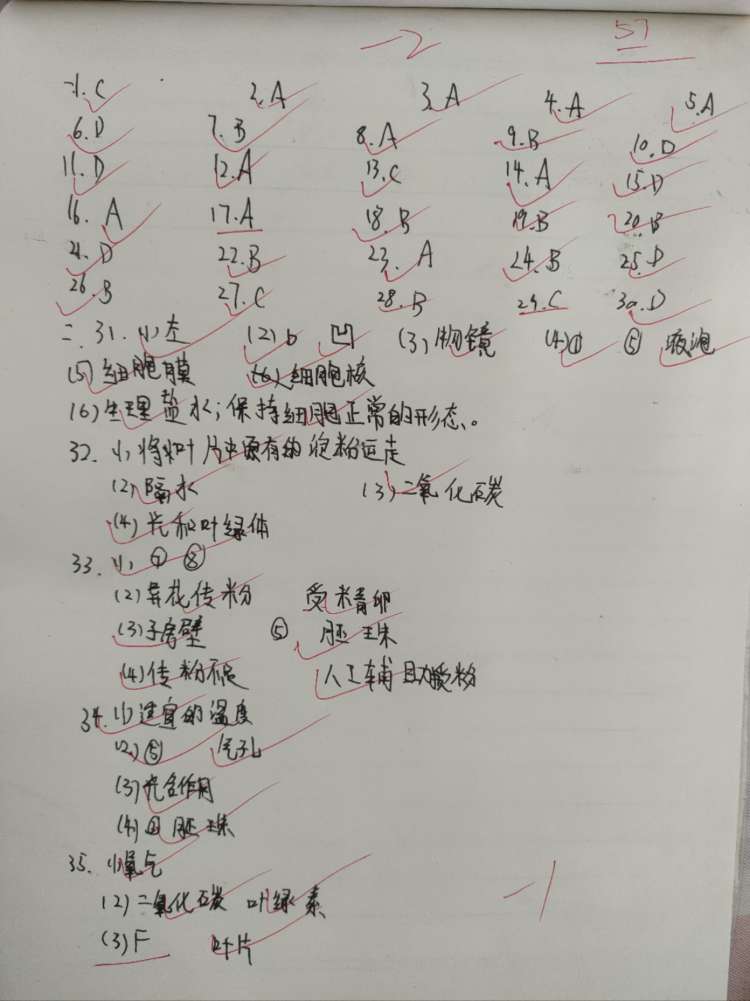 -2 57
一1. C 2. A 3. A 4. A 5. A
6. D 7. B 8. A 9. B 10. D
11. D 12. A 13. C 14. A 15. D
16. A 17. A 18. B 19. B 20. B
21. D 22. B 23. A 24. B 25. D
26. B 27. C 28. B 29. C 30. D
二. 31. (1) 左 (2) b 凹 (3) 物镜 (4) ① ⑤ 液泡
(5) 细胞膜 (6) 细胞核
(6) 生理盐水;保持细胞正常的形态。
32. (1) 将叶片中原有的淀粉运走
(2) 隔水 (3) 二氧化石炭
(4) 光和叶绿体
33. (1) ⑦ ⑧
(2) 异花传粉 受米青卵
(3) 子房壁 ⑤ 胚珠
(4) 传粉不足 人工辅助授粉
34. (1) 适宜的温度
(2) ⑤ 气孔
(3) 光合作用
(4) 胚珠
35. (1) 氧气
(2) 二氧化石炭 叶绿素
(3) F 叶片
-1